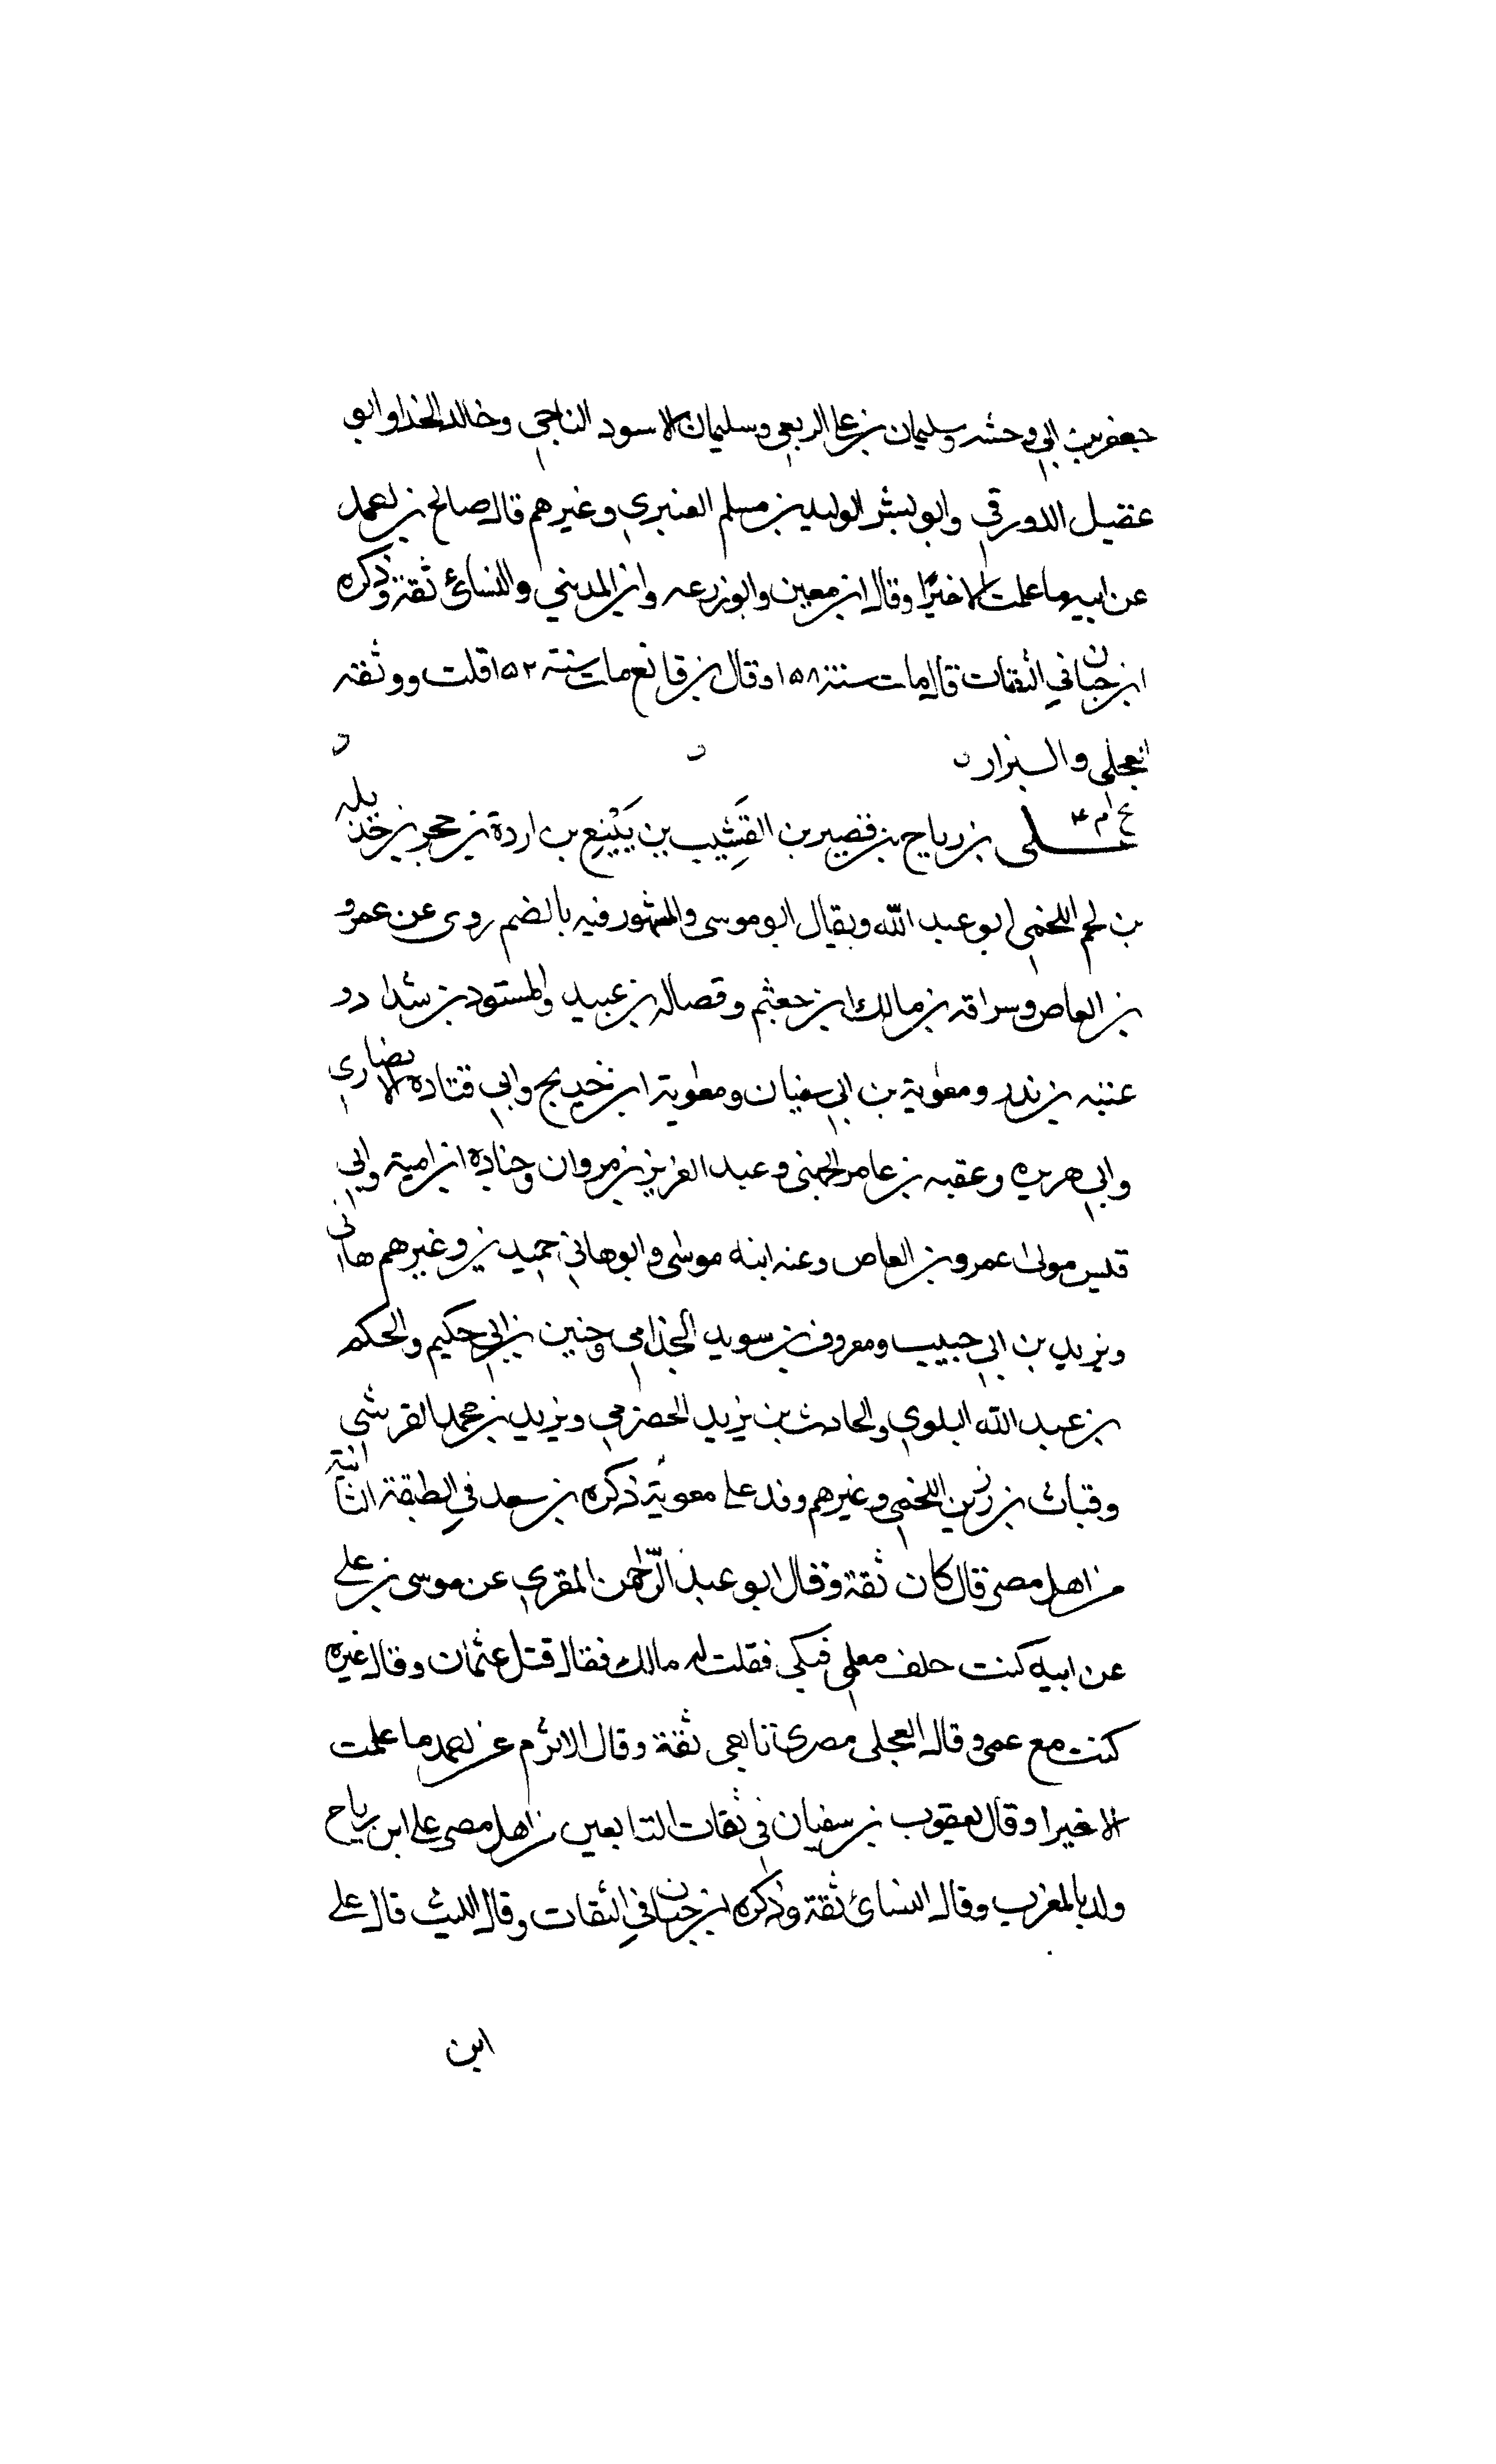 جعفر بن ابي وحشه وسليمان بن على الربعي وسليمان الاسود الناجي وخالد الحذا وابو
عقيل الدورقي وابو بشر الوليد بن مسلم العنبري وغيرهم قال صالح بن احمد
عن ابيه ما علمت الا خيرًا وقال ابن معين وابو زرعه وابن المديني والنسائ ثقة وذكره
ابن حبان في الثقات قال مات سنة ١٥٨ وقال بن قانع مات سنة ١٥٢ قلت ووثقه
العجلى والبزار
بخ م ٤ على بن رباح بن قصير بن القَشِيب بن يَيْنِع بن اردة بن حجر بن جذيله
بن لخم اللخمى ابو عبد الله ويقال ابو موسى والمشهور فيه بالضم روى عن عمرو
بن العاص وسراقه بن مالك ابن جعشم وفضاله بن عبيد والمستورد بن شداد و
عتبه بن ندر ومعوية بن ابي سفيان ومعوية ابن خديج وابي قتاده الانصاري
وابي هريره وعقبه بن عامر الجهنى وعبد العزيز بن مروان وجناده ابن امية وابي
قيس مولى عمرو بن العاص وعنه ابنه موسى وابو هاني حميد بن هانى وغيرهم
ويزيد بن ابي حبيب ومعروف بن سويد الجذامي وحنين بن ابي حكيم والحكم
بن عبد الله البلوي والحارث بن يزيد الحضرمي ويزيد بن محمد القرشي
وقباث بن رزين اللخمى وغيرهم وفد على معوية ذكره بن سعد في الطبقة الثانية
من اهل مصر قال كان ثقة وقال ابو عبد الرّحمن المقري عن موسى بن على
عن ابيه كنت خلف معلمي فبكى فقلت له مالك فقال قتل عثمان وقال غيره
كنت مع عمى وقال العجلى مصري تابعى ثقة وقال الاثرم عن احمد ما علمت
الا خيرا وقال يعقوب بن سفيان في ثقات التابعين من اهل مصر على ابن رباح
ولد بالمغرب وقال النسائ ثقة وذكره ابن حبان في الثقات وقال الليث قال على
ابن